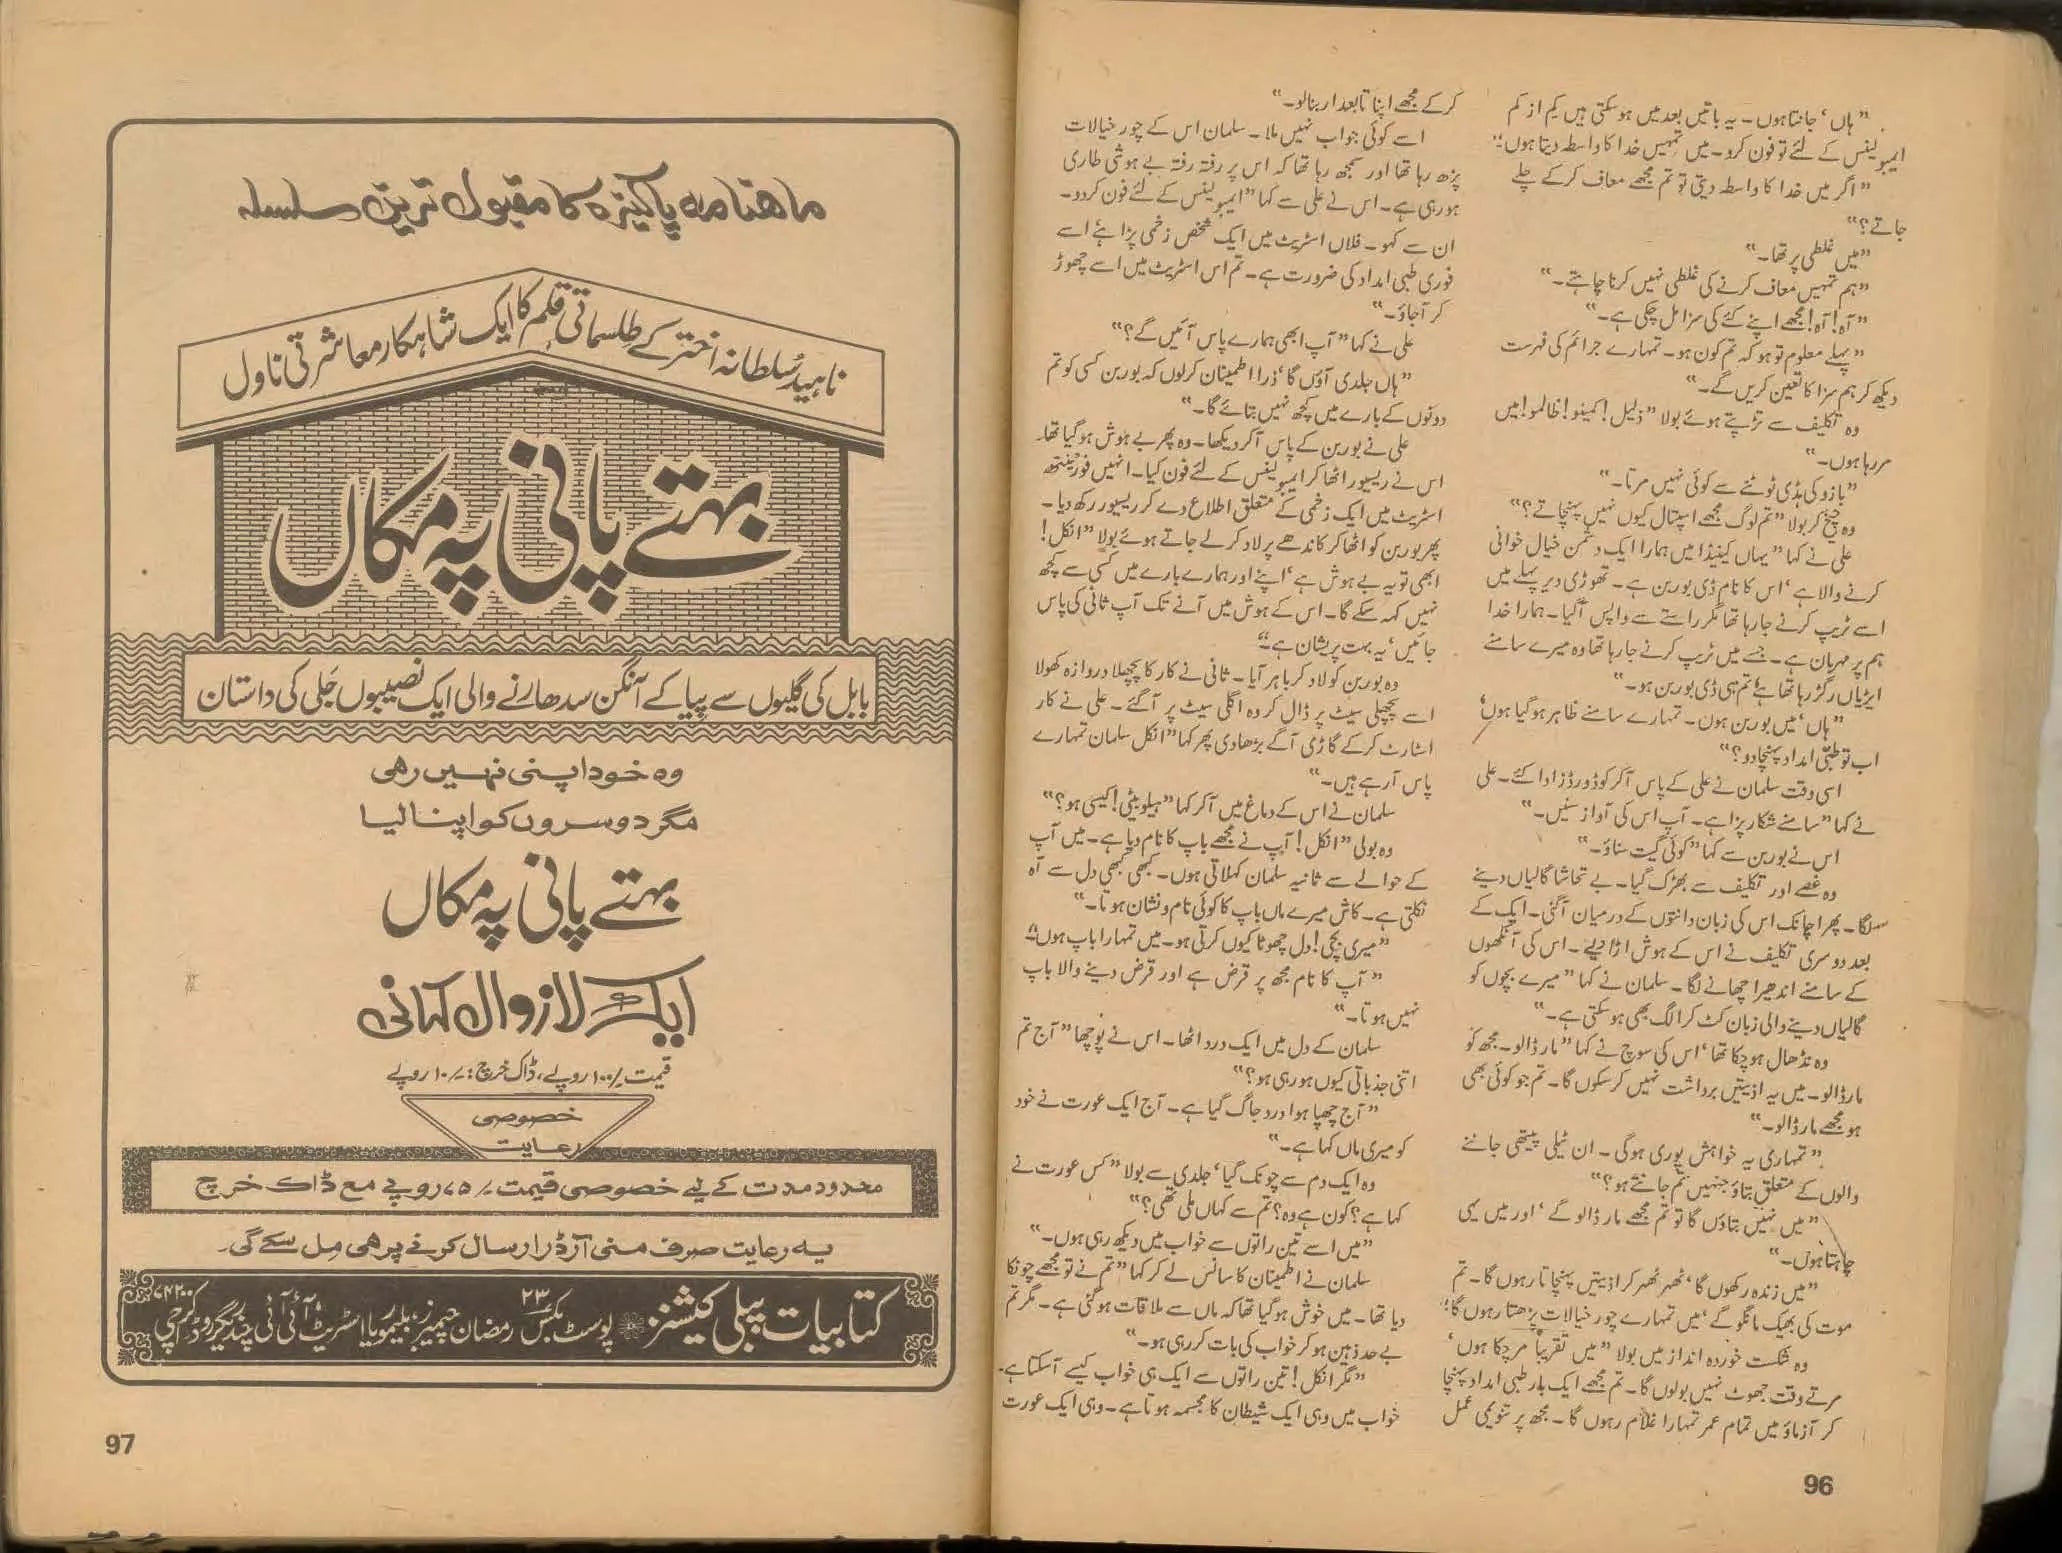 "ہاں' جانتا ہوں۔ یہ باتیں بعد میں ہو سکتی ہیں کم از کم
ایمبولینس کے لئے تو فون کرو۔ میں تمہیں خدا کا واسطہ دیتا ہوں۔"
"اگر میں خدا کا واسطہ دیتی تو تم مجھے معاف کر کے چلے
جاتے؟"
"میں غلطی پر تھا۔"
"ہم تمہیں معاف کرنے کی غلطی نہیں کرنا چاہتے۔"
"آہ! آہ! مجھے اپنے کئے کی سزا مل چکی ہے۔"
"پہلے معلوم تو ہو کہ تم کون ہو۔ تمہارے جرائم کی فہرست
دیکھ کر ہم سزا کا تعین کریں گے۔"
وہ تکلیف سے تڑپتے ہوئے بولا "ذلیل! کمینو! ظالمو! میں
مر رہا ہوں۔"
"بازو کی ہڈی ٹوٹنے سے کوئی نہیں مرتا۔"
وہ چیخ کر بولا "تم لوگ مجھے اسپتال کیوں نہیں پہنچاتے؟"
علی نے کہا "یہاں کینیڈا میں ہمارا ایک دشمن خیال خوانی
کرنے والا ہے' اس کا نام ڈی بورین ہے۔ تھوڑی دیر پہلے میں
اسے ٹریپ کرنے جا رہا تھا مگر راستے سے واپس آ گیا۔ ہمارا خدا
ہم پر مہربان ہے۔ جسے میں ٹریپ کرنے جا رہا تھا وہ میرے سامنے
ایڑیاں رگڑ رہا تھا ہے' تم ہی ڈی بورین ہو۔"
"ہاں' میں بورین ہوں۔ تمہارے سامنے ظاہر ہو گیا ہوں'
اب تو طبّی امداد پہنچا دو؟"
اسی وقت سلمان نے علی کے پاس آ کر کوڈ ورڈز ادا کئے۔ علی
نے کہا "سامنے شکار پڑا ہے۔ آپ اس کی آواز سنیں۔"
اس نے بورین سے کہا "کوئی گیت سناؤ۔"
وہ غصے اور تکلیف سے بھڑک گیا۔ بے تحاشا گالیاں دینے
لگا۔ پھر اچانک اس کی زبان دانتوں کے درمیان آ گئی۔ ایک کے
بعد دوسری تکلیف نے اس کے ہوش اڑا دیئے۔ اس کی آنکھوں
کے سامنے اندھیرا چھانے لگا۔ سلمان نے کہا "میرے بچوں کو
گالیاں دینے والی زبان کٹ کر الگ بھی ہو سکتی ہے۔"
وہ نڈھال ہو چکا تھا' اس کی سوچ نے کہا "مار ڈالو۔ مجھ کو
مار ڈالو۔ میں یہ اذیتیں برداشت نہیں کر سکوں گا۔ تم جو کوئی بھی
ہو مجھے مار ڈالو۔"
"تمہاری یہ خواہش پوری ہو گی۔ ان ٹیلی پیتھی جاننے
والوں کے متعلق بتاؤ جنہیں تم جانتے ہو؟"
"میں نہیں بتاؤں گا تو تم مجھے مار ڈالو گے' اور میں یہی
چاہتا ہوں۔"
"میں زندہ رکھوں گا' ٹھہر ٹھہر کر اذیتیں پہنچاتا رہوں گا۔ تم
موت کی بھیک مانگو گے' میں تمہارے چور خیالات پڑھتا رہوں گا۔"
وہ شکست خوردہ انداز میں بولا "میں تقریباً مر چکا ہوں'
مرتے وقت جھوٹ نہیں بولوں گا۔ تم مجھے ایک بار طبی امداد پہنچا
کر آزماؤ میں تمام عمر تمہارا غلام رہوں گا۔ مجھ پر تنویمی عمل
کر کے مجھے اپنا تابعدار بنا لو۔"
اسے کوئی جواب نہیں ملا۔ سلمان اس کے چور خیالات
پڑھ رہا تھا اور سمجھ رہا تھا کہ اس پر رفتہ رفتہ بے ہوشی طاری
ہو رہی ہے۔ اس نے علی سے کہا "ایمبولینس کے لئے فون کر دو۔
ان سے کہو۔ فلاں اسٹریٹ میں ایک شخص زخمی پڑا ہے' اسے
فوری طبی امداد کی ضرورت ہے۔ تم اس اسٹریٹ میں اسے چھوڑ
کر آ جاؤ۔"
علی نے کہا "آپ ابھی ہمارے پاس آئیں گے؟"
"ہاں جلدی آؤں گا' ذرا اطمینان کر لوں کہ بورین کسی کو تم
دونوں کے بارے میں کچھ نہیں بتائے گا۔"
علی نے بورین کے پاس آ کر دیکھا۔ وہ پھر بے ہوش ہو گیا تھا۔
اس نے ریسیور اٹھا کر ایمبولینس کے لئے فون کیا۔ انہیں فورٹینتھ
اسٹریٹ میں ایک زخمی کے متعلق اطلاع دے کر ریسیور رکھ دیا۔
پھر بورین کو اٹھا کر کاندھے پر لاد کر لے جاتے ہوئے بولا "انکل!
ابھی تو یہ بے ہوش ہے' اپنے اور ہمارے بارے میں کسی سے کچھ
نہیں کہہ سکے گا۔ اس کے ہوش میں آنے تک آپ ثانی کی پاس
جائیں' یہ بہت پریشان ہے۔"
وہ بورین کو لاد کر باہر آیا۔ ثانی نے کار کا پچھلا دروازہ کھولا
اسے پچھلی سیٹ پر ڈال کر وہ اگلی سیٹ پر آ گئے۔ علی نے کار
اسٹارٹ کر کے گاڑی آگے بڑھا دی پھر کہا "انکل سلمان تمہارے
پاس آ رہے ہیں۔"
سلمان نے اس کے دماغ میں آ کر کہا "ہیلو بیٹی! کیسی ہو؟"
وہ بولی "انکل! آپ نے مجھے باپ کا نام دیا ہے۔ میں آپ
کے حوالے سے ثانیہ سلمان کہلاتی ہوں۔ کبھی کبھی دل سے آہ
نکلتی ہے۔ کاش میرے ماں باپ کا کوئی نام و نشان ہوتا۔"
"میری بچی! دل چھوٹا کیوں کرتی ہو۔ میں تمہارا باپ ہوں۔"
"آپ کا نام مجھ پر قرض ہے اور قرض دینے والا باپ
نہیں ہوتا۔"
سلمان کے دل میں ایک درد اٹھا۔ اس نے پوچھا "آج تم
اتنی جذباتی کیوں ہو رہی ہو؟"
"آج چھپا ہوا درد جاگ گیا ہے۔ آج ایک عورت نے خود
کو میری ماں کہا ہے۔"
وہ ایک دم سے چونک گیا' جلدی سے بولا "کس عورت نے
کہا ہے؟ کون ہے وہ؟ تم سے کہاں ملی تھی؟"
"میں اسے تین راتوں سے خواب میں دیکھ رہی ہوں۔"
سلمان نے اطمینان کا سانس لے کر کہا "تم نے تو مجھے چونکا
دیا تھا۔ میں خوش ہو گیا تھا کہ ماں سے ملاقات ہو گئی ہے۔ مگر تم
بے حد ذہین ہو کر خواب کی بات کر رہی ہو۔"
"مگر انکل! تین راتوں سے ایک ہی خواب کیسے آ سکتا ہے۔
خواب میں وہی ایک شیطان کا مجسمہ ہوتا ہے۔ وہی ایک عورت
96
ماہنامہ پاکیزہ کا مقبول ترین سلسلہ
ناہید سُلطانہ اختر کے طلسماتی قلم کا ایک شاہکار معاشرتی ناول
بہتے پانی پہ مکاں
بابل کی گلیوں سے پیا کے آنگن سدھارنے والی ایک نصیبوں جَلی کی داستان
وہ خود اپنی نہیں رہی
مگر دوسروں کو اپنا لیا
بہتے پانی پہ مکاں
ایک لازوال کہانی
قیمت ۱۰۰/ روپے، ڈاک خرچ: ۱۰/- روپے
خصوصی
رعایت
محدود مدت کے لیے خصوصی قیمت ۷۵/ روپے مع ڈاک خرچ
یہ رعایت صرف منی آرڈر ارسال کرنے پر ہی مل سکے گی۔
کتابیات پبلی کیشنز پوسٹ بکس ۲۳ رمضان چیمبرز بلیموریا اسٹریٹ آئی آئی چندریگر روڈ کراچی ۷۴۲۰۰
97